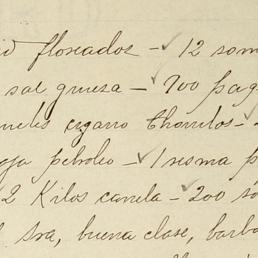 floreados - 12 som
sal gruesa - 700 pag
cigarro Chorrillos -
petroleo - 1 resma p
2 Kilos canela - 200 so
sra, buena clase, barba